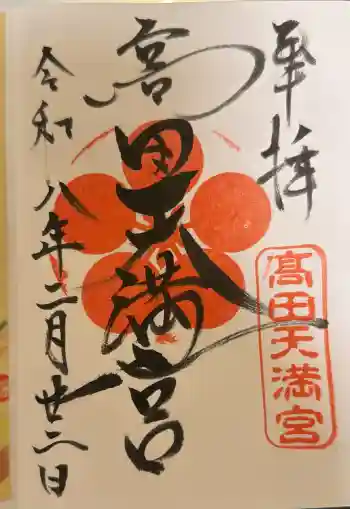 奉拝
髙田天満宮
髙田天満宮
令和八年二月廿二日